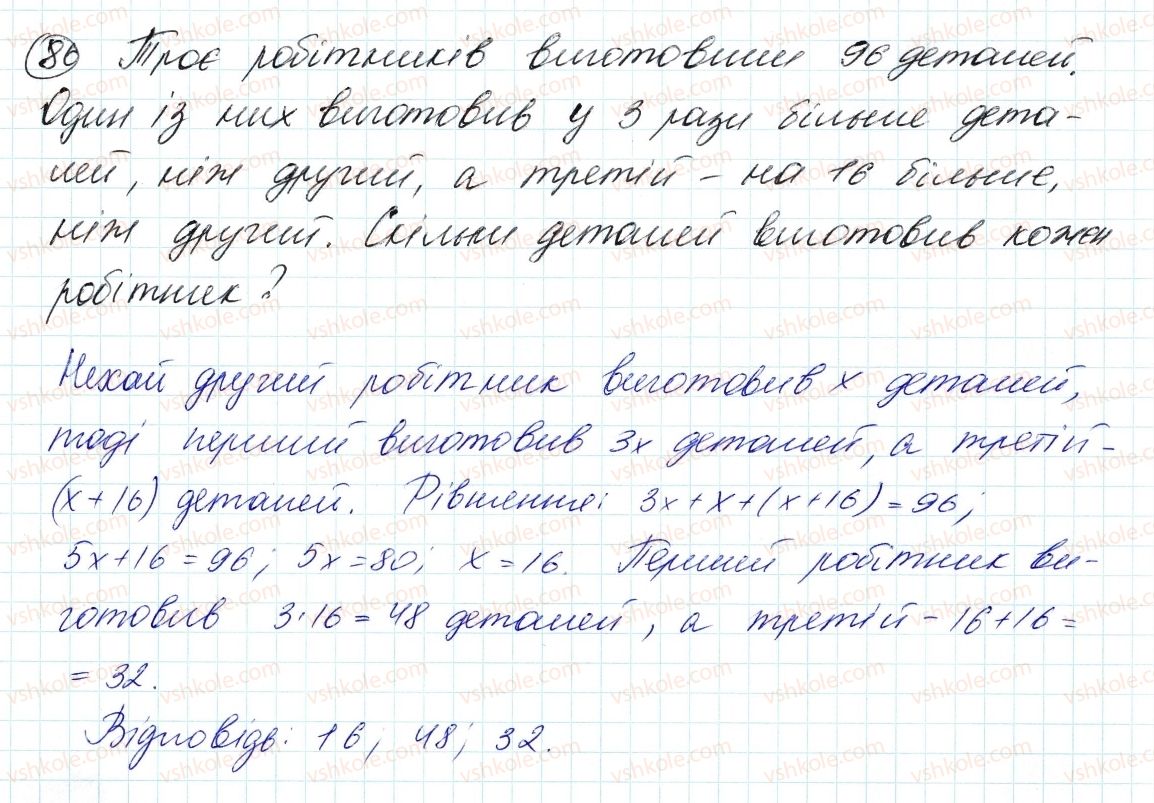 86 Троє робітників виготовили 96 деталей.
Один із них виготовив у 3 рази більше дета-
лей, ніж другий, а третій – на 16 більше,
ніж другий. Скільки деталей виготовив кожен
робітник?
Нехай другий робітник виготовив x деталей,
тоді перший виготовив 3x деталей, а третій –
(x+16) деталей. Рівняння: 3x+x+(x+16)=96;
5x+16=96; 5x=80; x=16. Перший робітник ви-
готовив 3·16=48 деталей, а третій – 16+16=
=32.
Відповідь: 16; 48; 32.